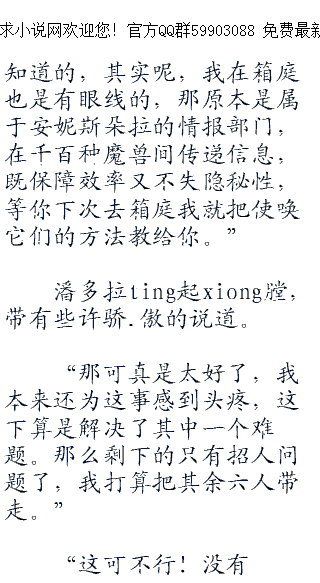 求小说网欢迎您！官方QQ群59903088 免费最新
知道的，其实呢，我在箱庭
也是有眼线的，那原本是属
于安妮斯朵拉的情报部门，
在千百种魔兽间传递信息，
既保障效率又不失隐秘性，
等你下次去箱庭我就把使唤
它们的方法教给你。”
潘多拉ting起xiong膛，
带有些许骄.傲的说道。
“那可真是太好了，我
本来还为这事感到头疼，这
下算是解决了其中一个难
题。那么剩下的只有招人问
题了，我打算把其余六人带
走。”
“这可不行！没有